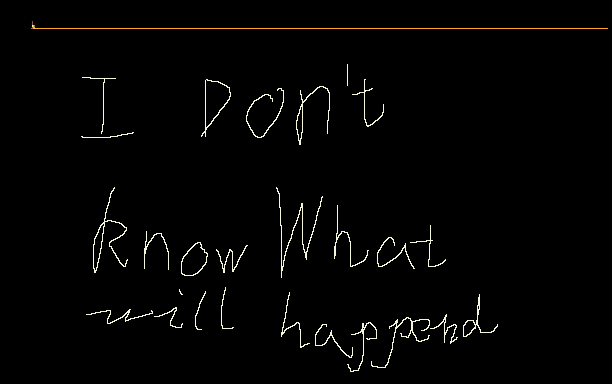 I Don't
know What
will happend